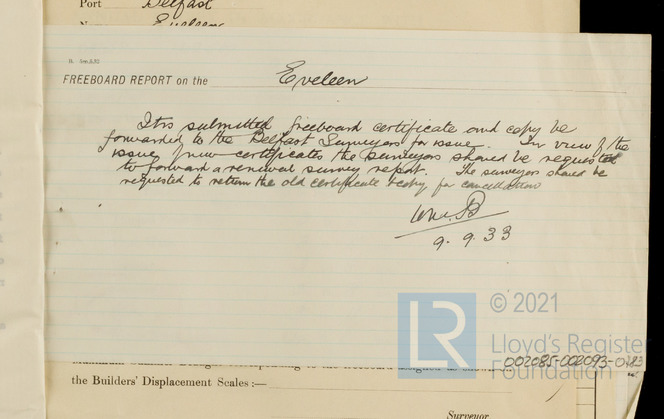 Port Belfast
Eveleen
FREEBOARD REPORT on the Eveleen
It is submitted freeboard certificate and copy be
forwarded to the Belfast Surveyors for issue. In view of the
issue of new certificates the surveyors should be requested
to forward a renewal survey report. The surveyors should be
requested to return the old certificate & copy for cancellation
9.9.33
LR
© 2021
Lloyd's Register
Foundation
002085-002093-0183
the Builders' Displacement Scales :—
Surveyor